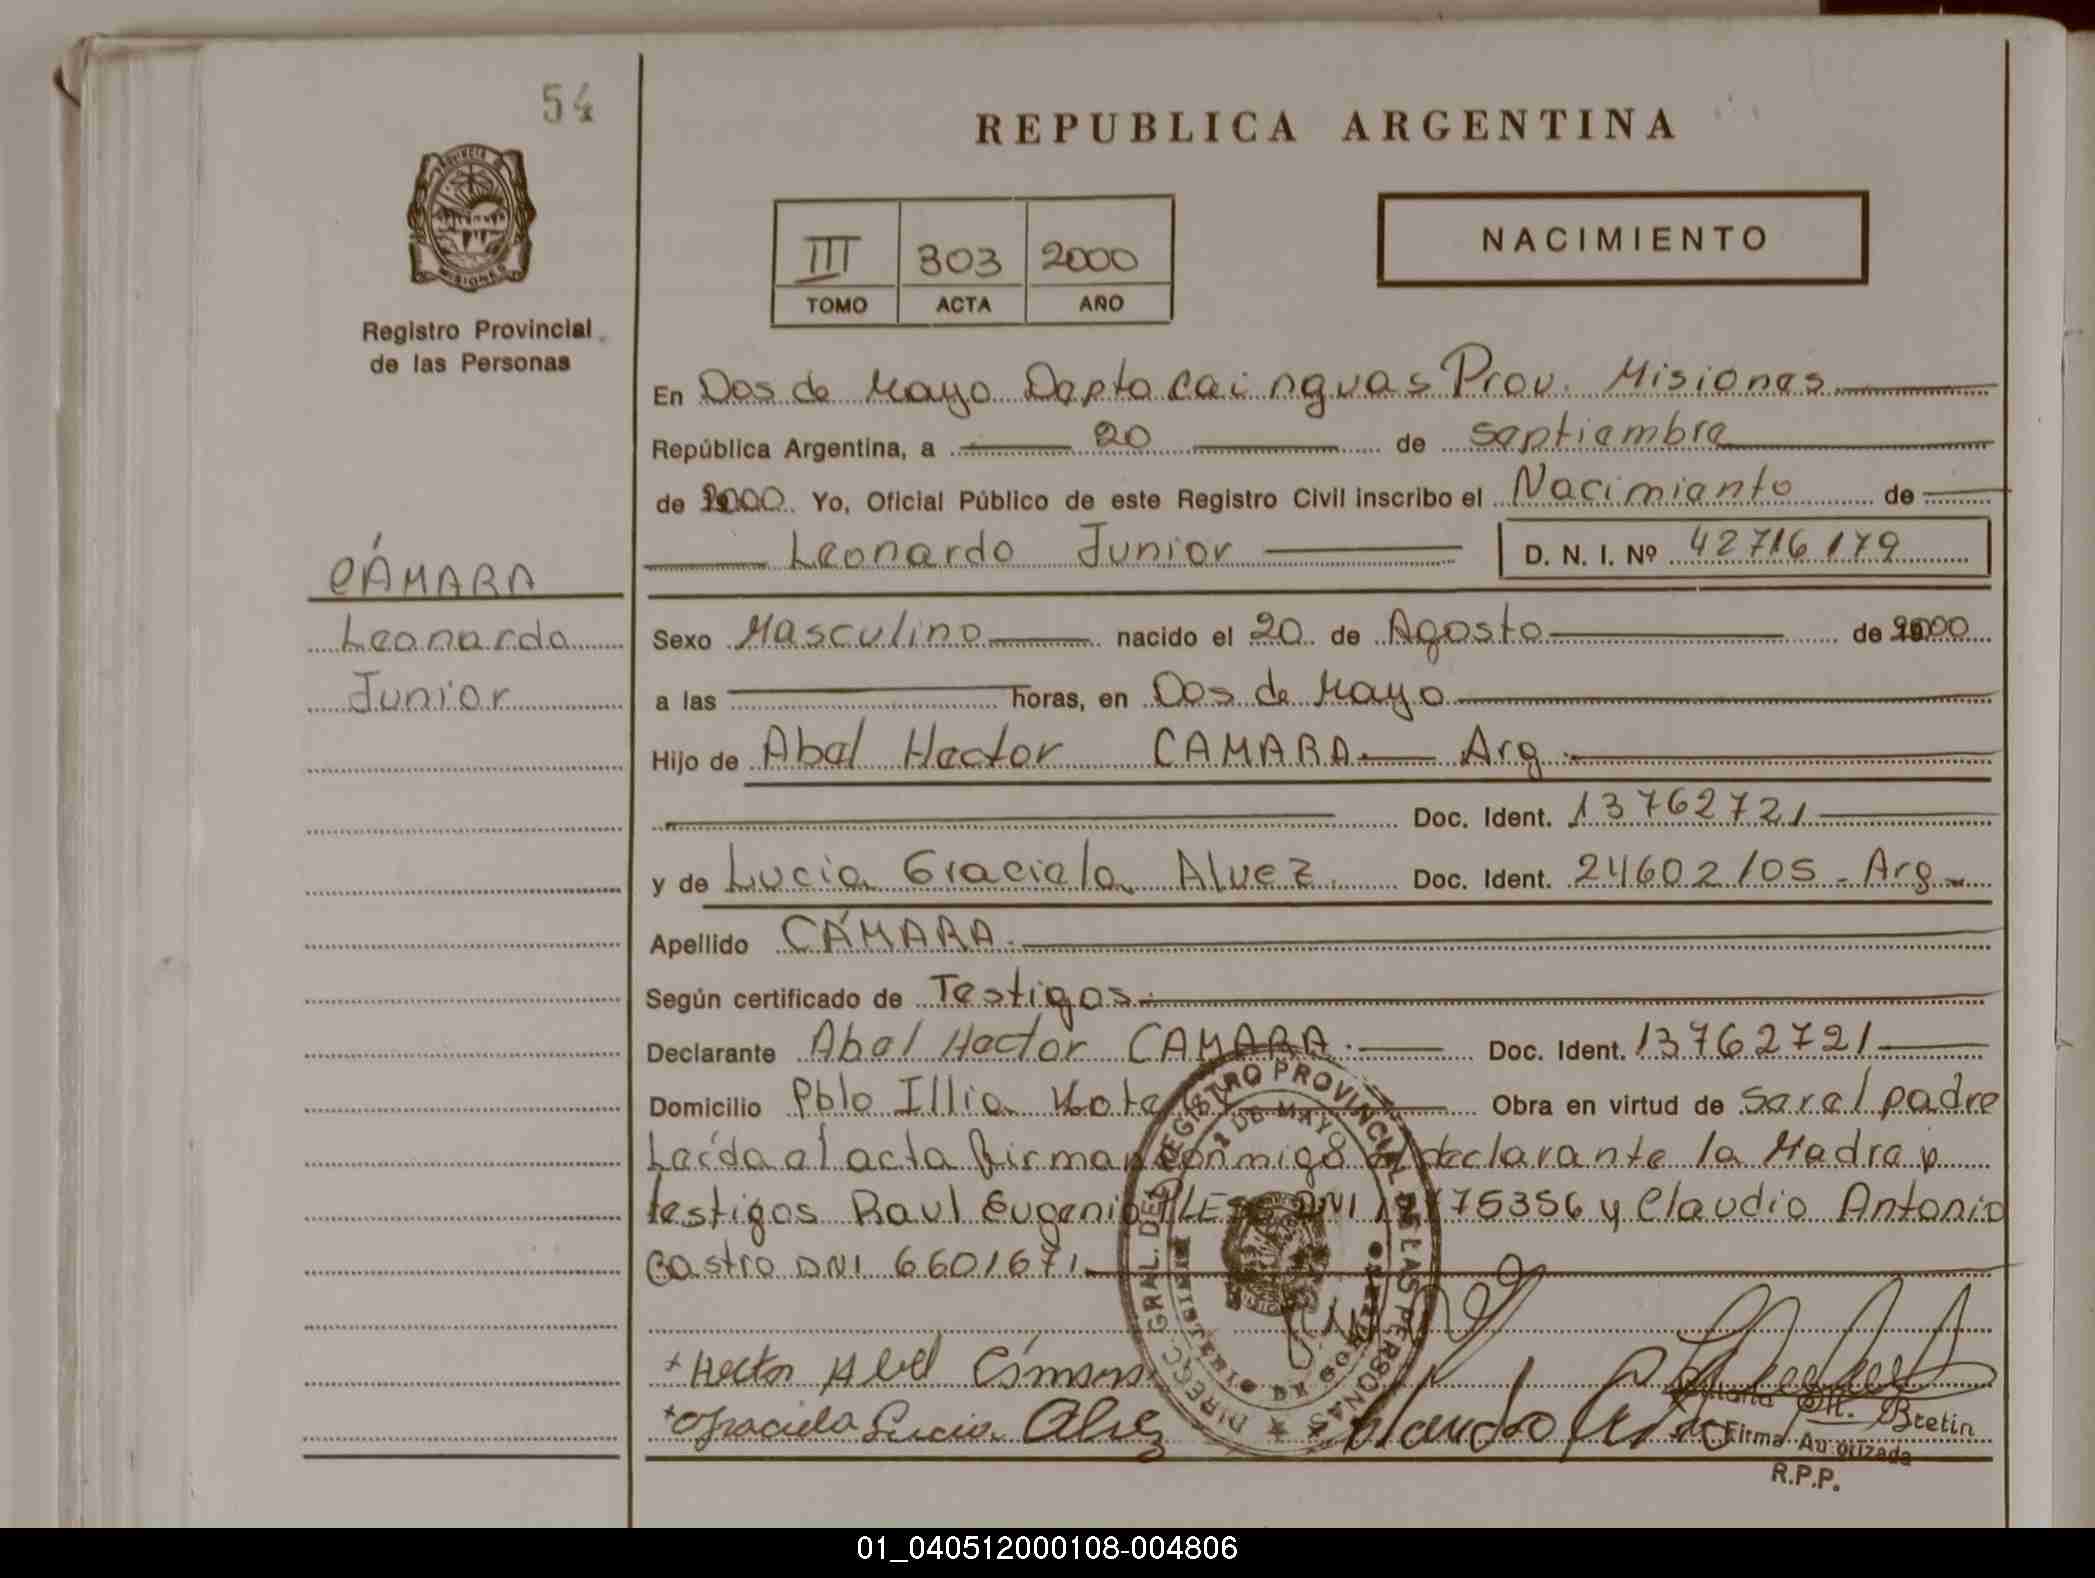 54
REPUBLICA ARGENTINA
PROVINCIA DE
MISIONES
Registro Provincial
de las Personas
III 303 2000
TOMO ACTA AÑO
NACIMIENTO
En Dos de Mayo Depto Cainguas Prov. Misiones
República Argentina, a 20 de septiembre
de 2000 Yo, Oficial Público de este Registro Civil inscribo el Nacimiento de
Leonardo Junior D. N. I. Nº 42716179
CÁMARA
Leonardo
Junior
Sexo Masculino nacido el 20 de Agosto de 2000
a las horas, en Dos de Mayo
Hijo de Abel Hector CAMARA Arg.
Doc. Ident. 13762721
y de Lucia Graciela Alvez Doc. Ident. 24602105 - Arg
Apellido CÁMARA.
Según certificado de Testigos.
Declarante Abel Hector CAMARA. Doc. Ident. 13762721
Domicilio Pblo Illia Obra en virtud de ser el padre
Leída el acta firman conmigo el declarante la Madre y
testigos Raul Eugenio DNI y Claudio Antonio
Castro DNI 6601671
DIRECC. GRAL. DEL REGISTRO PROVINCIAL DE LAS PERSONAS
2 DE MAYO
MISIONES
Hector Abel Cámara
Graciela Lucia Alvez
Claudio
M. Bretin
Firma Autorizada
R.P.P.
01_040512000108-004806